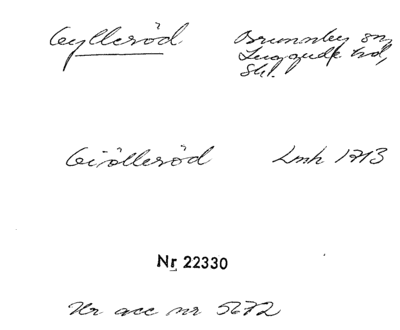 Gylleröd Brunnby sn,
Luggude hd,
Skl.
Giölleröd Lmk 1713
Nr 22330
Ur acc nr 5672